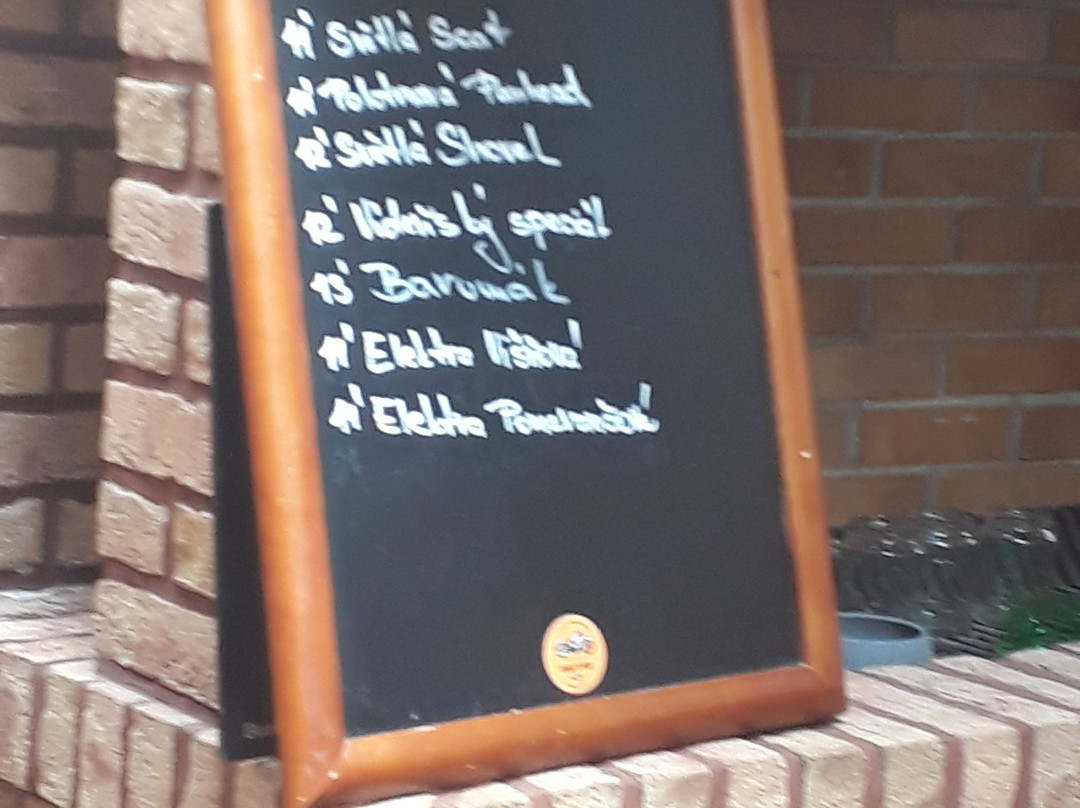 11' Světlá Scat
11' Polotmavá Panhead
12' Světlá Shovel
12' Vídeňský speciál
13' Barumák
11' Elektra Višňová
11' Elektra Pomerančová